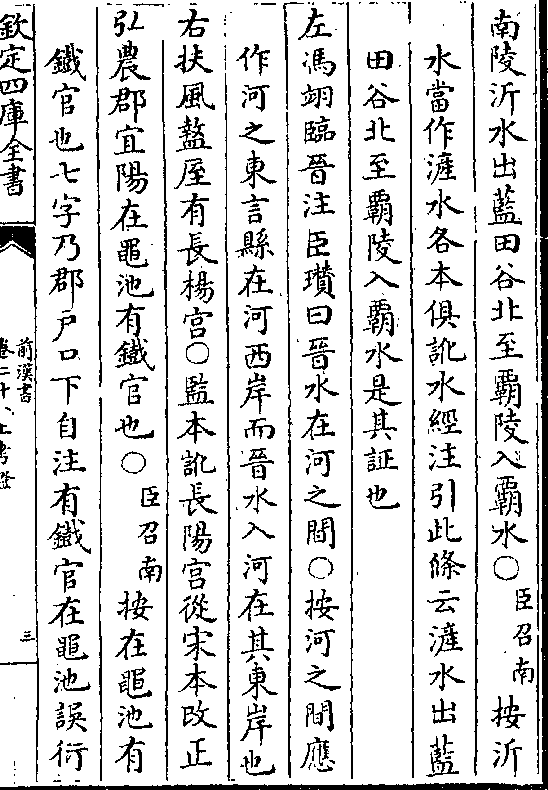 南陵沂水出藍田谷北至霸陵入霸水○臣召南按沂
水當作滻水各本俱訛水經注引此條云滻水出藍
田谷北至霸陵入霸水是其証也
左馮翊臨晉注臣瓚曰晉水在河之間○按河之間應
作河之東言縣在河西岸而晉水入河在其東岸也
右扶風盩厔有長楊宮○監本訛長陽宮從宋本改正
弘農郡宜陽在黽池有鐵官也○臣召南按在黽池有
鐵官也七字乃郡戶口下自注有鐵官在黽池誤衍
欽定四庫全書
前漢書
三